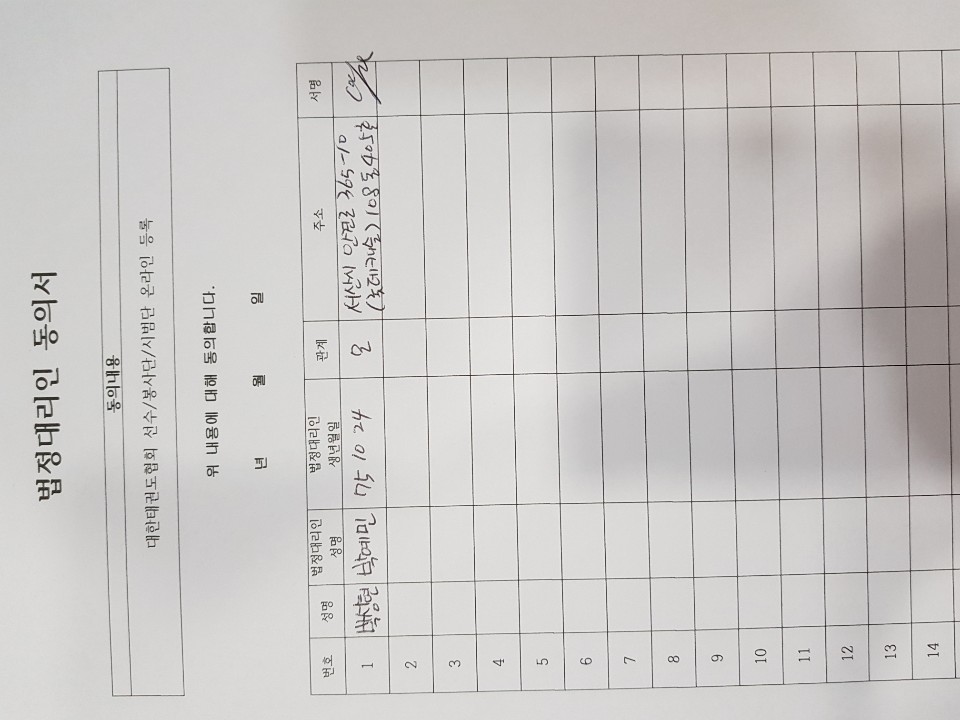 법정대리인 동의서
동의내용
대한태권도협회 선수/봉사단/시범단 온라인 등록
위 내용에 대해 동의합니다.
년 월 일
번호 성명 법정대리인 성명 법정대리인 생년월일 관계 주소 서명
1 박예민 75 10 24 모 서산시 안견로 365-10
(롯데캐슬) 108동 405호
2
3
4
5
6
7
8
9
10
11
12
13
14